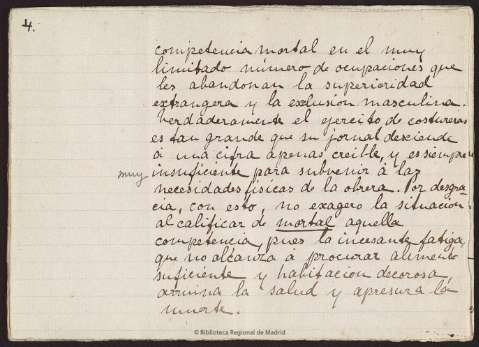 4.
competencia mortal en el muy
limitado número de ocupaciones que
les abandonan la superioridad
extrangera y la exclusión masculina.
Verdaderamente el ejercito de costureras
es tan grande que su jornal desciende
á una cifra apenas creible, y es siempre
muy insuficiente para subvenir á las
necesidades fisicas de la obrera. Por desgra-
cia, con esto, no exagero la situación
al calificar de mortal aquella
competencia, pues la incesante fatiga,
que no alcanza á procurar alimento
suficiente y habitacion decorosa,
arruina la salud y apresura la
muerte.
© Biblioteca Regional de Madrid